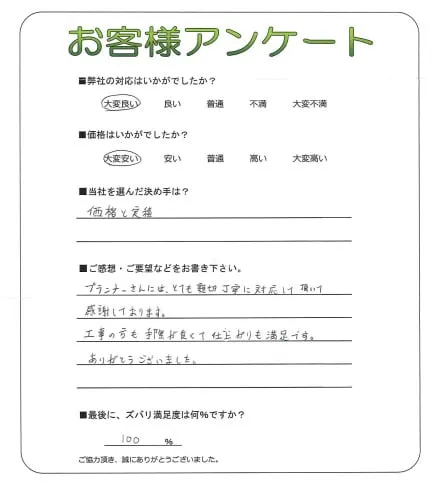 お客様アンケート
■弊社の対応はいかがでしたか？
大変良い 良い 普通 不満 大変不満
■価格はいかがでしたか？
大変安い 安い 普通 高い 大変高い
■当社を選んだ決め手は？
価格と実績
■ご感想・ご要望などをお書き下さい。
プランナーさんには、とても親切丁寧に対応して頂いて
感謝しております。
工事の方も手際が良くて仕上がりも満足です。
ありがとうございました。
■最後に、ズバリ満足度は何％ですか？
100 ％
ご協力頂き、誠にありがとうございました。